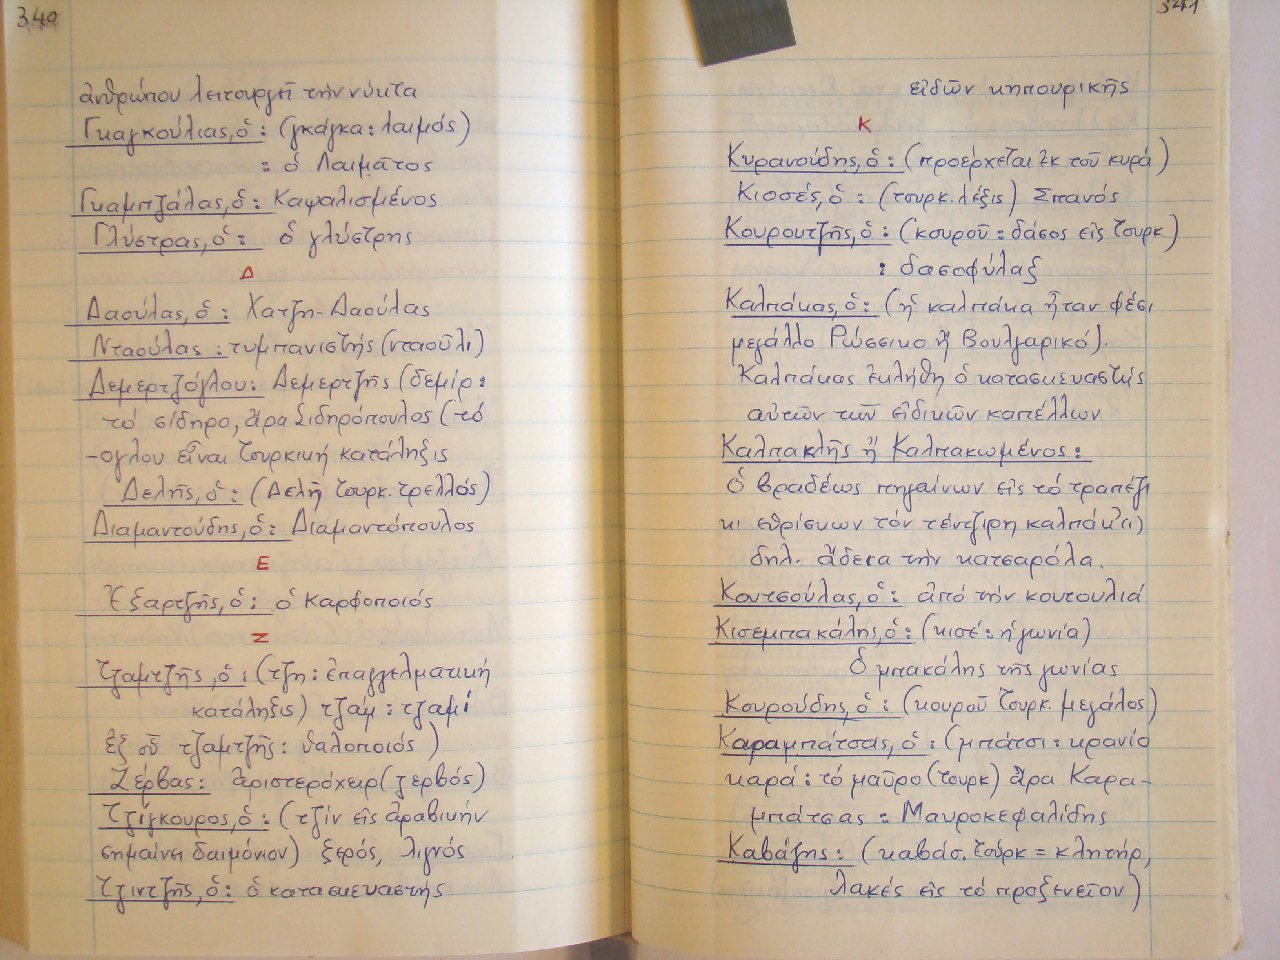 340
ἀνθρώπου λειτουργεῖ τὴν νύκτα
Γκαγκούλιας, ὁ: (γκάγκα: λαιμός)
: ὁ Λαιμᾶτος
Γκαμπζάλας, ὁ: Καψαλισμένος
Γλύστρας, ὁ: ὁ γλύστρης
Δ
Δαούλας, ὁ: Χατζη-Δαούλας
Νταούλας: τυμπανιστής (νταοῦλι)
Δεμερτζόγλου: Δεμερτζῆς (δεμίρ:
τό σίδηρο, ἄρα Σιδηρόπουλος (τό
-ογλου εἶναι τουρκική κατάληξις
Δελῆς, ὁ: (Δελῆ τουρκ. τρελλός)
Διαμαντούδης, ὁ: Διαμαντόπουλος
Ε
Ἐξαρτζῆς, ὁ: ὁ καρφοποιός
Ζ
Τζαμτζῆς, ὁ: (τζη: ἐπαγγελματική
κατάληξις) τζάμ: τζαμί
ἐξ οὗ τζαμτζῆς: ὑαλοποιός)
Ζέρβας: ἀριστερόχειρ (ζερβός)
Τζίγκουρος, ὁ: (τζίν εἰς ἀραβικήν
σημαίνει δαιμόνιον) ξερός, λιγνός
Τζιντζῆς, ὁ: ὁ κατασκευαστής
341
εἰδῶν κηπουρικῆς
Κ
Κυρανούδης, ὁ: (προέρχεται ἐκ τοῦ κυρά)
Κιοσές, ὁ: (τουρκ. λέξις) Σπανός
Κουρουτζῆς, ὁ: (κουροῦ: δάσος εἰς τουρκ.)
: δασοφύλαξ
Καλπάκας, ὁ: (ἡ καλπάκα ἦταν φέσι
μεγάλλο Ρώσσικο ἤ Βουλγαρικό).
Καλπάκας ἐκλήθη ὁ κατασκευαστής
αὐτῶν τῶν εἰδικῶν καπέλλων
Καλπακλῆς ἤ Καλπακωμένος:
Ὁ βραδέως πηγαίνων εἰς τό τραπέζι
κι εὑρίσκων τόν τέντζιρη καλπάκ(ι)
δηλ. ἄδεια τήν κατσαρόλα.
Κουτσούλας, ὁ: ἀπό τήν κουτουλιά
Κισεμπακάλης, ὁ: (κισέ: ἡ γωνία)
Ὁ μπακάλης τῆς γωνίας
Κουρούδης, ὁ: (κουροῦ τουρκ. μεγάλος)
Καραμπάτσας, ὁ: (μπάτσι: κρανίο
καρά: τό μαῦρο (τουρκ) ἄρα Καρα-
μπάτσας: Μαυροκεφαλίδης
Καβάζης: (καβάσ. τουρκ = κλητήρ,
λακές εἰς τό προξενεῖον)